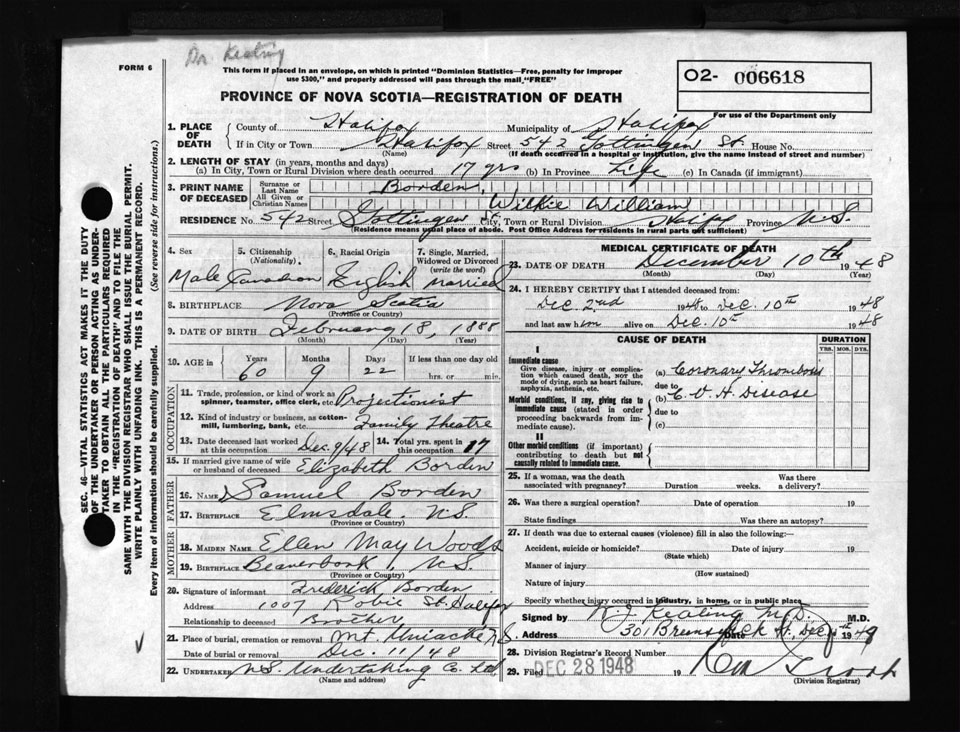 Dr. Keating
FORM 6
This form if placed in an envelope, on which is printed "Dominion Statistics—Free, penalty for improper
use $300," and properly addressed will pass through the mail, "FREE"
O2- 006618
For use of the Department only
PROVINCE OF NOVA SCOTIA—REGISTRATION OF DEATH
SEC. 46—VITAL STATISTICS ACT MAKES IT THE DUTY
OF THE UNDERTAKER OR PERSON ACTING AS UNDER-
TAKER TO OBTAIN ALL THE PARTICULARS REQUIRED
IN THE "REGISTRATION OF DEATH" AND TO FILE THE
SAME WITH THE DIVISION REGISTRAR WHO SHALL ISSUE THE BURIAL PERMIT.
WRITE PLAINLY WITH UNFADING INK. THIS IS A PERMANENT RECORD.
Every item of information should be carefully supplied. (See reverse side for instructions.)
1. PLACE OF DEATH
County of Halifax Municipality of Halifax
If in City or Town Halifax Street 542 Gottingen St. House No.
(Name) (If death occurred in a hospital or institution, give the name instead of street and number)
2. LENGTH OF STAY (in years, months and days)
(a) In City, Town or Rural Division where death occurred 17 yrs (b) In Province Life (c) In Canada (if immigrant)
3. PRINT NAME OF DECEASED
Surname or Last Name Borden,
All Given or Christian Names Wilkie William
RESIDENCE No. 542 Street Gottingen St City, Town or Rural Division Halifax Province N.S.
(Residence means usual place of abode. Post Office Address for residents in rural parts not sufficient)
4. Sex 5. Citizenship (Nationality) 6. Racial Origin 7. Single, Married, Widowed or Divorced (write the word)
Male Canadian English married
8. BIRTHPLACE Nova Scotia
(Province or Country)
9. DATE OF BIRTH February 18, 1888
(Month) (Day) (Year)
10. AGE in Years Months Days If less than one day old
60 9 22 hrs. or min.
OCCUPATION
11. Trade, profession, or kind of work as spinner, teamster, office clerk, etc. Projectionist
12. Kind of industry or business, as cotton-mill, lumbering, bank, etc. Family Theatre
13. Date deceased last worked at this occupation Dec. 9/48 14. Total yrs. spent in this occupation 17
15. If married give name of wife or husband of deceased Elizabeth Borden
FATHER
16. Name Samuel Borden
17. Birthplace Elmsdale. N.S.
(Province or Country)
MOTHER
18. Maiden Name Ellen May Woods
19. Birthplace Beaverbank, N.S.
(Province or Country)
20. Signature of informant Frederick Borden
Address 1007 Robie St. Halifax
Relationship to deceased Brother
21. Place of burial, cremation or removal Mt. Uniacke N.S.
Date of burial or removal Dec. 11/48
22. Undertaker N.S. Undertaking Co. Ltd
(Name and address)
MEDICAL CERTIFICATE OF DEATH
23. DATE OF DEATH December 10th 1948
(Month) (Day) (Year)
24. I HEREBY CERTIFY that I attended deceased from:
Dec. 2nd 1948 to Dec. 10th 1948
and last saw him alive on Dec. 10th 1948
CAUSE OF DEATH DURATION
YRS. MOS. DYS.
I
Immediate cause
Give disease, injury or complication which caused death, not the mode of dying, such as heart failure, asphyxia, asthenia, etc.
(a) Coronary Thrombosis
due to
Morbid conditions, if any, giving rise to immediate cause (stated in order proceeding backwards from immediate cause).
(b) C. V. H. Disease
due to
(c)
II
Other morbid conditions (if important) contributing to death but not causally related to immediate cause.
25. If a woman, was the death associated with pregnancy? Duration weeks. Was there a delivery?
26. Was there a surgical operation? Date of operation 19
State findings Was there an autopsy?
27. If death was due to external causes (violence) fill in also the following:—
Accident, suicide or homicide? Date of injury 19
(State which)
Manner of injury
(How sustained)
Nature of injury
Specify whether injury occurred in industry, in home, or in public place
Signed by Keating M.D. M.D.
Address 301 Brunswick St. Date Dec 1949
28. Division Registrar's Record Number
29. Filed DEC 28 1948 19
(Division Registrar)